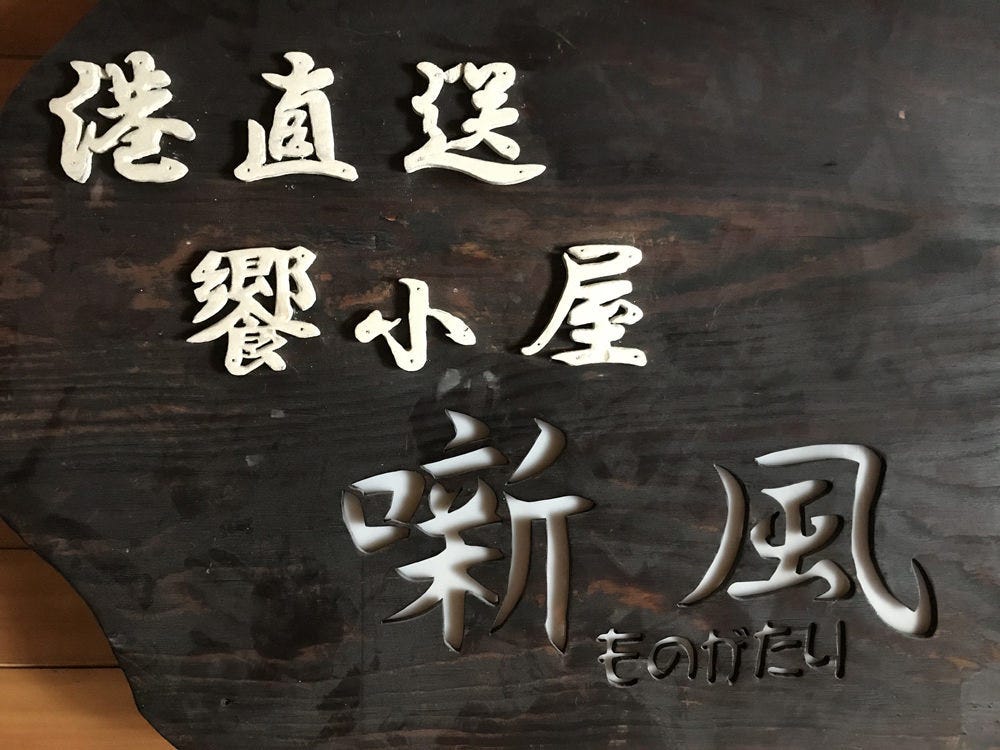 港直送
饗小屋
噺風
ものがたり